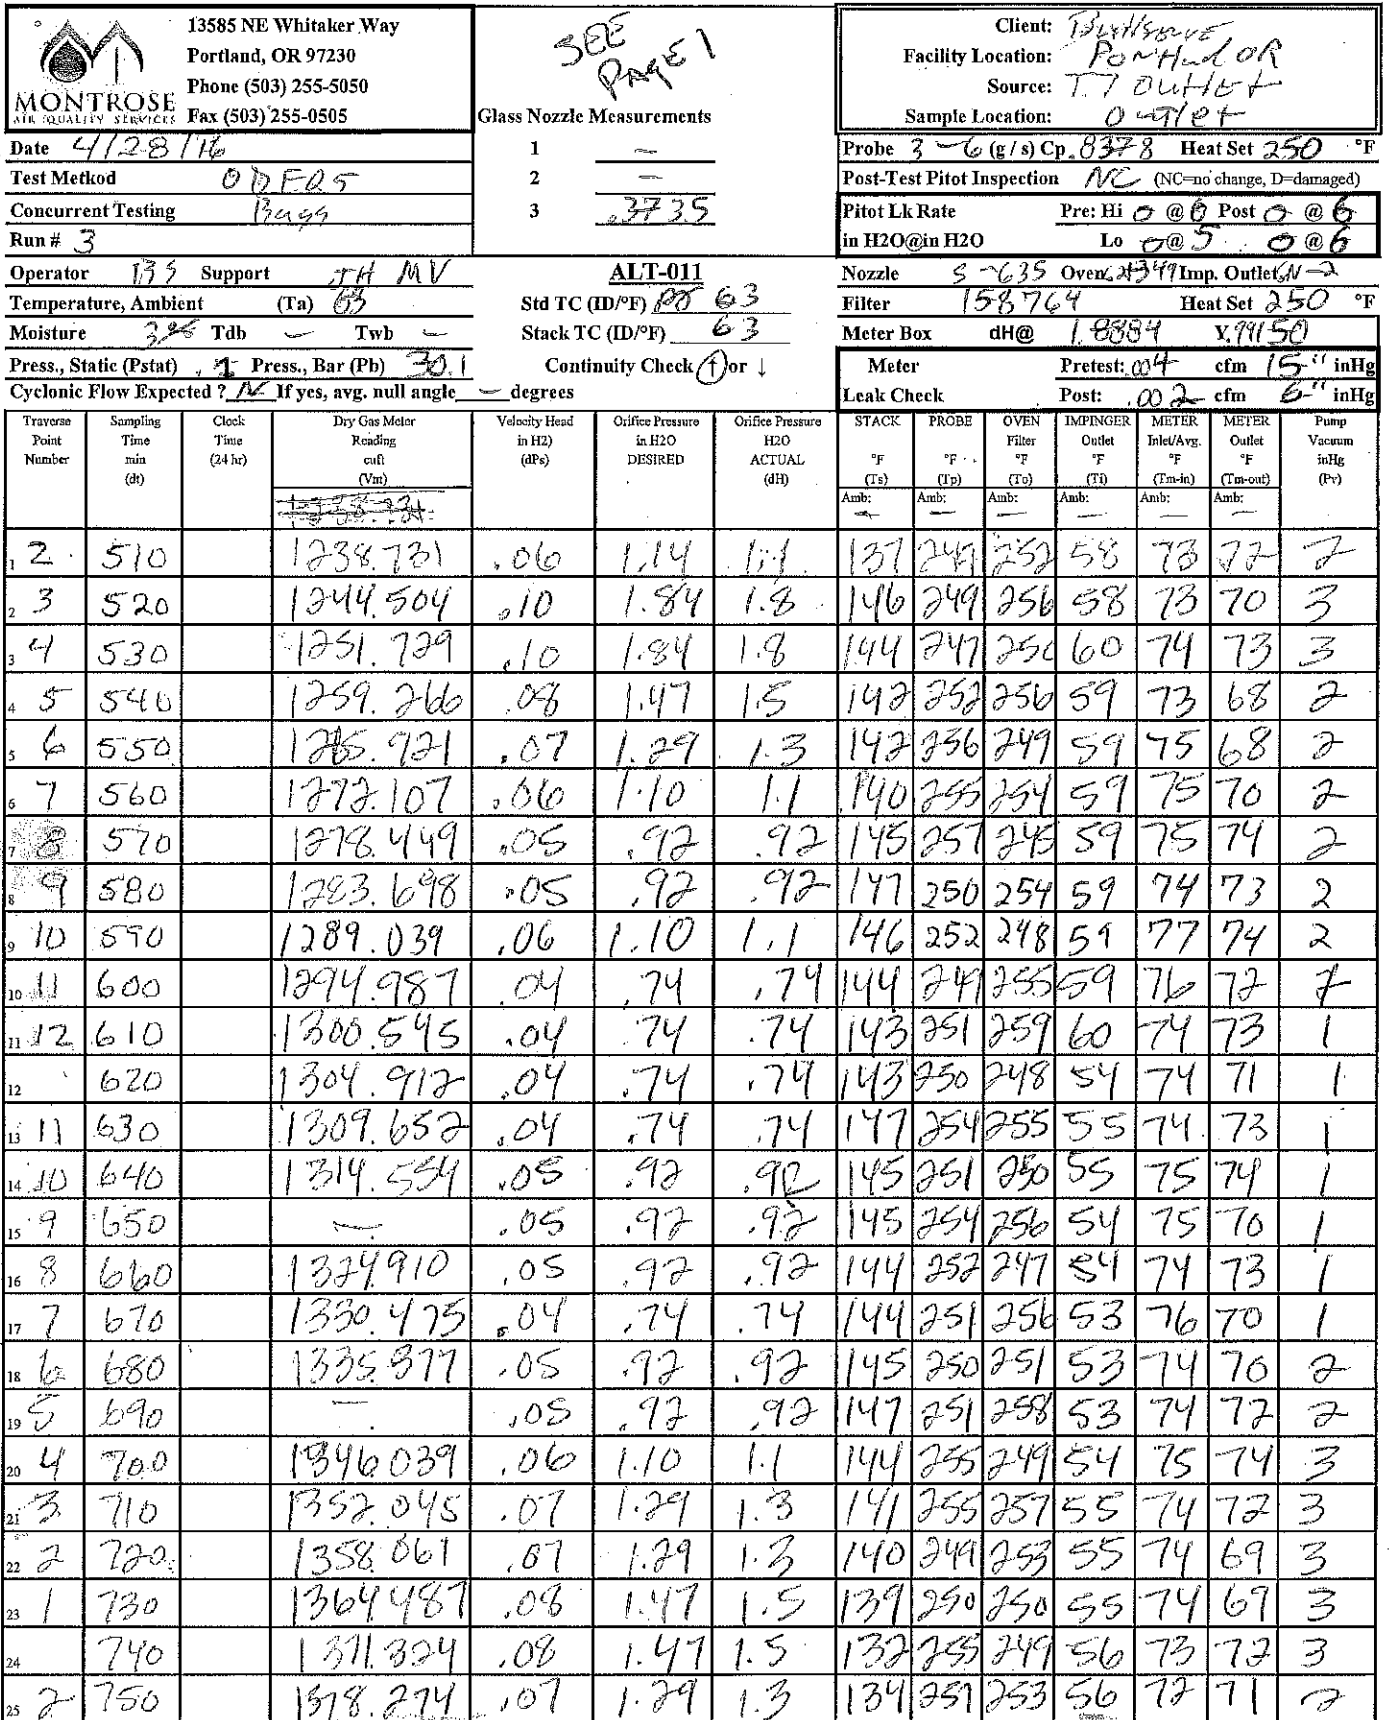 13585 NE Whitaker Way
Portland, OR 97230
Phone (503) 255-5050
Fax (503) 255-0505
MONTROSE
AIR QUALITY SERVICES
SEE
PAGE 1
Glass Nozzle Measurements
1 —
2 —
3 .3735
Client:
Facility Location: Portland OR
Source: T7 Outlet
Sample Location: Outlet
Date 4/28/16
Test Method ODEQ5
Concurrent Testing
Run # 3
Probe 3-6 (g / s) Cp .8378 Heat Set 250 °F
Post-Test Pitot Inspection NC (NC=no change, D=damaged)
Pitot Lk Rate Pre: Hi 0 @ 6 Post 0 @ 6
in H2O@in H2O Lo 0 @ 5 0 @ 6
Operator Support JH MV
Temperature, Ambient (Ta) 63
Moisture 3% Tdb — Twb —
Press., Static (Pstat) Press., Bar (Pb) 30.1
Cyclonic Flow Expected ? N If yes, avg. null angle — degrees
ALT-011
Std TC (ID/°F) 63
Stack TC (ID/°F) 63
Continuity Check ↑ or ↓
Nozzle S-635 Oven Imp. Outlet
Filter 158764 Heat Set 250 °F
Meter Box dH@ 1.8884 Y .99150
Meter Pretest: .004 cfm 15" inHg
Leak Check Post: .002 cfm 6" inHg
Traverse Point Number Sampling Time min (dt) Clock Time (24 hr) Dry Gas Meter Reading cuft (Vm) Velocity Head in H2) (dPs) Orifice Pressure in H2O DESIRED Orifice Pressure H2O ACTUAL (dH) STACK °F (Ts) PROBE °F (Tp) OVEN Filter °F (To) IMPINGER Outlet °F (Ti) METER Inlet/Avg. °F (Tm-in) METER Outlet °F (Tm-out) Pump Vacuum inHg (Pv)
Amb: — Amb: — Amb: — Amb: — Amb: — Amb: —
1 2 510 1238.731 .06 1.14 1.1 137 249 252 58 73 72 2
2 3 520 1244.504 .10 1.84 1.8 146 249 256 58 73 70 3
3 4 530 1251.729 .10 1.84 1.8 144 247 60 74 73 3
4 5 540 1259.266 .08 1.47 1.5 142 252 256 59 73 68 2
5 6 550 1265.921 .07 1.29 1.3 142 256 249 59 75 68 2
6 7 560 1272.107 .06 1.10 1.1 140 255 254 59 75 70 2
7 8 570 1278.449 .05 .92 .92 145 257 245 59 75 74 2
8 9 580 1283.698 .05 .92 .92 147 250 254 59 74 73 2
9 10 590 1289.039 .06 1.10 1.1 146 252 248 59 77 74 2
10 11 600 1294.987 .04 .74 .74 144 249 255 59 76 72 2
11 12 610 1300.545 .04 .74 .74 143 251 259 60 74 73 1
12 620 1304.912 .04 .74 .74 143 250 248 54 74 71 1
13 11 630 1309.652 .04 .74 .74 147 254 255 55 74 73 1
14 10 640 1314.554 .05 .92 .92 145 251 250 55 75 74 1
15 9 650 — .05 .92 .92 145 254 256 54 75 70 1
16 8 660 1324.910 .05 .92 .92 144 252 247 54 74 73 1
17 7 670 1330.475 .04 .74 .74 144 251 256 53 76 70 1
18 6 680 1335.377 .05 .92 .92 145 250 251 53 74 70 2
19 5 690 — .05 .92 .92 147 251 258 53 74 72 2
20 4 700 1346.039 .06 1.10 1.1 144 255 249 54 75 74 3
21 3 710 1352.045 .07 1.29 1.3 141 255 257 55 74 72 3
22 2 720 1358.061 .07 1.29 1.3 140 249 253 55 74 69 3
23 1 730 1364.487 .08 1.47 1.5 139 250 250 55 74 69 3
24 740 1371.324 .08 1.47 1.5 132 255 249 56 73 72 3
25 2 750 1378.274 .07 1.29 1.3 134 257 253 56 72 71 2